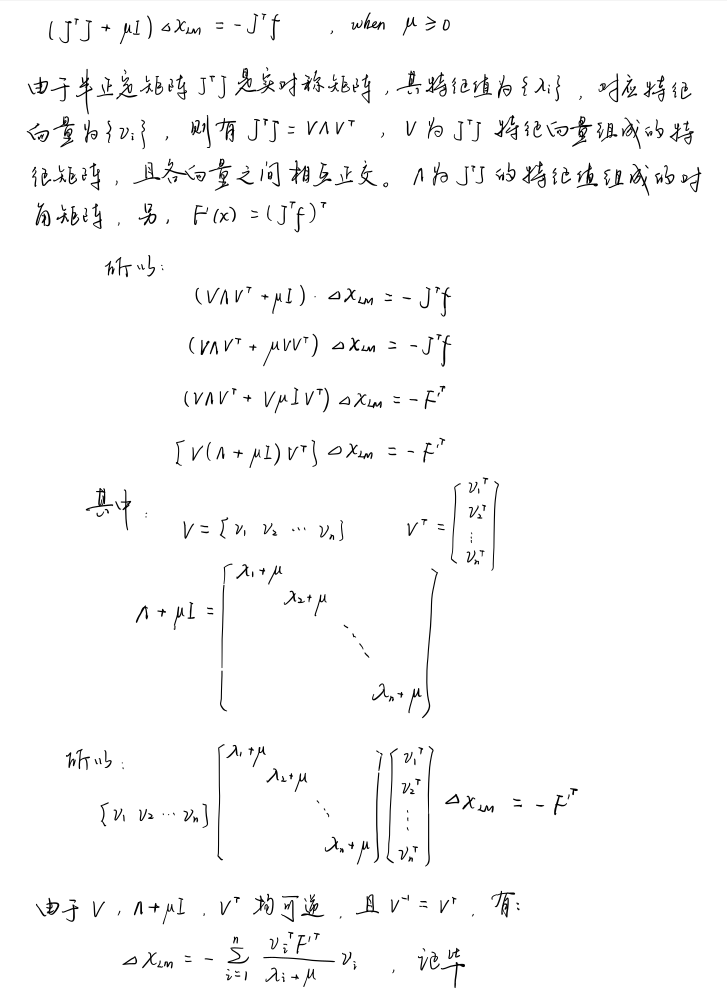 (JᵀJ + μI) ΔX_LM = -Jᵀf , when μ ≥ 0
由于半正定矩阵 JᵀJ 是实对称矩阵，其特征值为{λᵢ}，对应特征
向量为{vᵢ}，则有 JᵀJ = VΛVᵀ ，V 为 JᵀJ 特征向量组成的特
征矩阵，且各向量之间相互正交。Λ为 JᵀJ 的特征值组成的对
角矩阵，另，F'(x) = (Jᵀf)ᵀ
所以:
(VΛVᵀ + μI) · ΔX_LM = -Jᵀf
(VΛVᵀ + μVVᵀ) ΔX_LM = -Jᵀf
(VΛVᵀ + VμIVᵀ) ΔX_LM = -F'ᵀ
[V(Λ + μI)Vᵀ] ΔX_LM = -F'ᵀ
其中: V = [v₁ v₂ ⋯ vₙ] Vᵀ = [v₁ᵀ v₂ᵀ ⋮ vₙᵀ]
Λ + μI = [λ₁+μ λ₂+μ ⋱ λₙ+μ]
所以: [v₁ v₂ ⋯ vₙ] [λ₁+μ λ₂+μ ⋱ λₙ+μ] [v₁ᵀ v₂ᵀ ⋮ vₙᵀ] ΔX_LM = -F'ᵀ
由于 V，Λ+μI，Vᵀ 均可逆，且 V⁻¹ = Vᵀ，有:
ΔX_LM = - Σᵢ₌₁ⁿ (vᵢᵀF'ᵀ)/(λᵢ+μ) vᵢ ，记毕